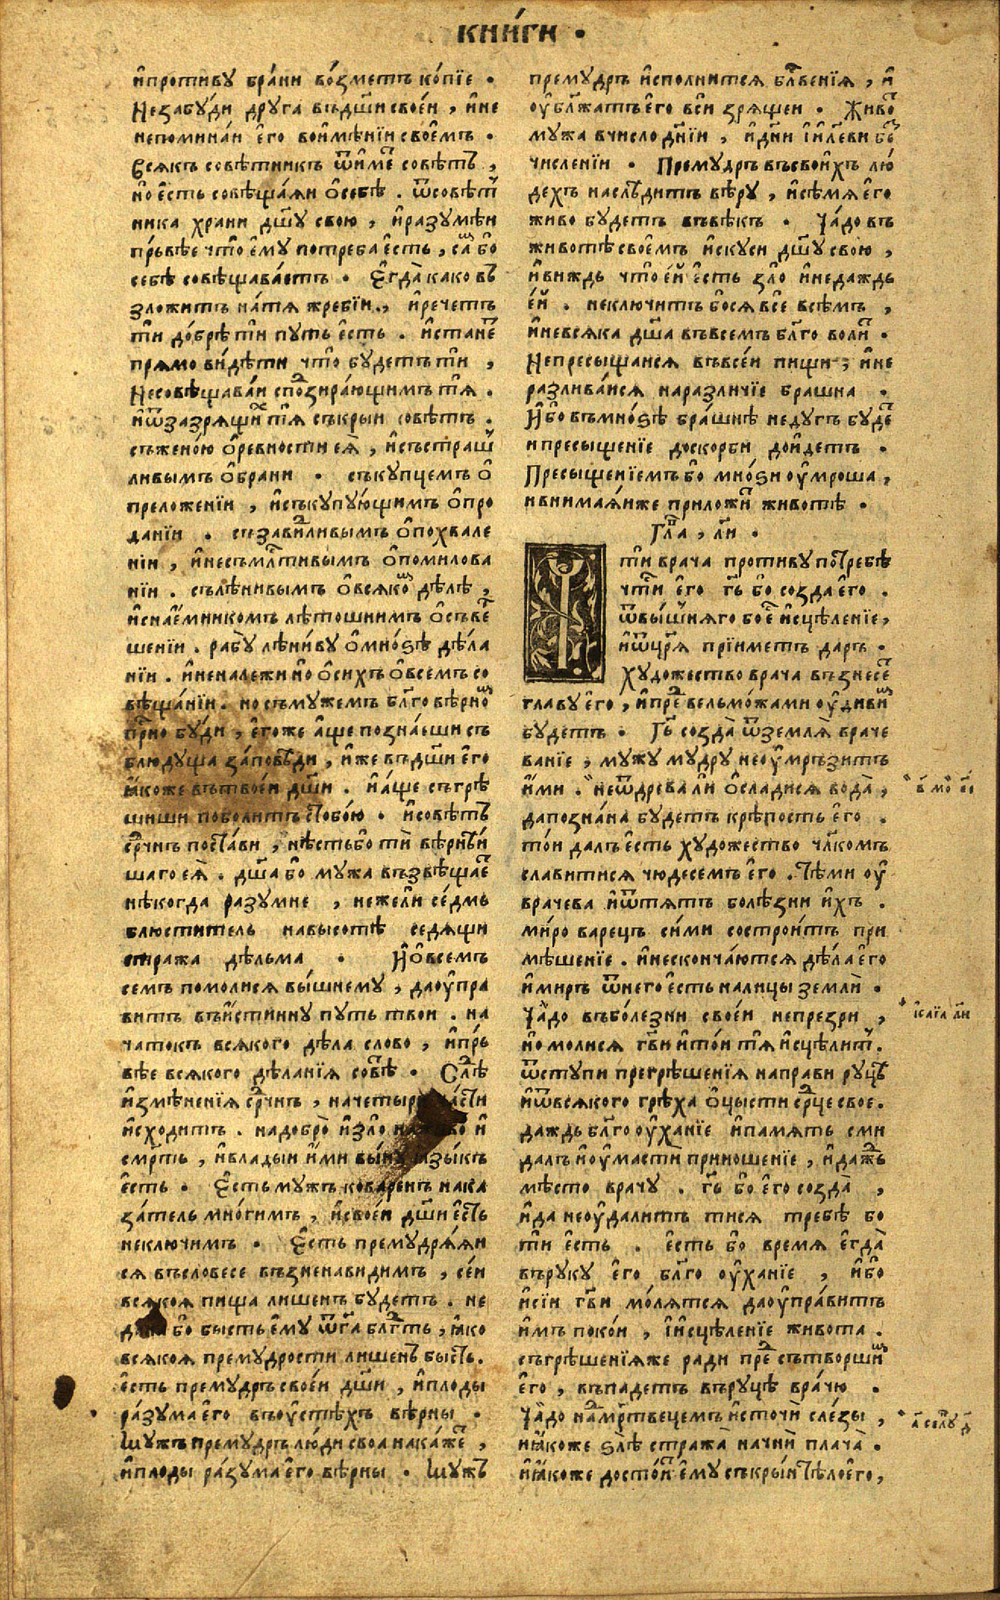 КНИ́ГИ .
и҆противу бра́ни во́зметъ ко́пїе .
Незабу́ди друга въдш҃и свое́и , и҆не
непомина́и е҆го вои҆мѣ́нїи свое҆мъ .
Всякъ совѣ́тникъ ѿи҆ме совѣтъ ,
но е҆сть совѣща́яи ѡ҆себѣ . ѿсовѣт
ника храни дш҃у свою , и҆разумѣи
прь́вѣе что̀ е҆му потреба е҆сть , са́ бо
себѣ совѣщава́етъ . Е҆гда̀ како въ
зложитъ на́тя жребїи , и҆речетъ
ти до́брѣ ти путь е҆сть . и҆стане
прямо ви́дѣти что̀ бу́детъ ти ,
Несовѣщава́и спозира́ющимъ тя .
и҆ѿзазрящи тя съкрыи совѣтъ .
съжено́ю ѡ҆ревности ея҆ , и҆състраш
ливымъ ѡ҆брани . съкупцемъ ѡ҆
преложенїи , и҆съкупу́ющимъ ѡ҆про
да́нїи . съзави́ливымъ ѡ҆похвале
нїи , и҆несъмлтивымъ ѡ҆помилова
нїи . съ́лѣнивымъ ѡ҆всяко дѣлѣ ,
и҆снае҆мникомъ лѣтошнимъ ѡ҆съве
шенїи . рабу̀ лѣни́ву ѡ҆мно́зѣ дѣла
нїи . и҆ненале́жи но ѡ҆сихъ ѡ҆всемъ со
вѣща́нїи . но съмужемъ бл҃го вѣрно
при́о буди , е҆гоже а҆ще позна́еши съ
блюдуща за́повѣди , и҆же въдш҃и е҆го
ꙗ҆коже вътвое́и дш҃и . и҆а́ще съгрѣ
шиши поболитъ стобо́ю . и҆совѣтъ
ср҃чнъ поста́ви , нѣ́стьбо ти вѣрнѣи
шаго ея҆ . дш҃а бо мужа възвѣщае
нѣкогда разумне , нежели се́дмь
блюститель навысотѣ седящи
стража дѣльма . И҆ѡ҆всемъ
семъ помолися вы́шнему , даоу҆пра
витъ въи҆стинну путь твои . на
чатокъ всякого дѣла слово , и҆прь
вѣе всякого дѣланїя совѣ . Слѣ
и҆змѣ́ненїя ср҃чнъ , начетыри части
и҆сходитъ . надобро̀ и҆зло и
смр҃ть , и҆владыи и҆ми выну язы́къ
е҆сть . Е҆сть мужъ кова́ренъ нака
за́тель мно́гимъ , и҆свое́и дш҃и е҆сть
неключимъ . Е҆сть премудря́яи
ся въсловесе възненавидимъ , се́и
всякоя пища лишенъ бу́детъ . не
бо бысть е҆му ѿга блг҃ть , ꙗ҆ко
всякоя премудрости лишенъ бысть .
е҆сть премудръ свое́и дш҃и , и҆плоды
ра́зума е҆го въоу҆стѣхъ вѣрны .
Мужъ премудръ лю́ди своа нака́же ,
и҆плоды ра́зума е҆го вѣрны . Мужъ
премудръ и҆сполнится бл҃венїя , и҆
оу҆бл҃жатъ е҆го вси зрящеи . Живо
мужа вчисло дн҃їи , и҆дн҃и і҆и҃леви бе
численїи . Премудръ въсвои҆хъ лю́
дехъ наслѣдитъ вѣру , и҆сѣмя е҆го
живо будетъ въвѣкъ . Ча́до въ
животѣ свое҆мъ и҆скуси дш҃у свою ,
и҆виждь что̀ е҆й е҆сть зло и҆недаждь
е҆й . неключитъ бося всѐ всѣмъ ,
и҆невсяка дш҃а въвсемъ бл҃го воли .
Непресыщаися въвсе́и пищи , и҆не
разлива́ися наразли́чїе брашна .
И҆бо въмно́зѣ бра́шнѣ недугъ буде
и пресыщенїе доскорби дои҆детъ .
Пресыщенїемъ бо мно́зи оу҆мроша ,
и внима́яиже приложи животѣ .
Гл҃а , ли .
ти врача противу потребѣ
чти е҆го гь бо созда е҆го .
ѿвы́шняго бое и҆сцѣленїе ,
и҆ѿцр҃я прїиметъ даръ .
художество врача възнесе
главу е҆го , и҆пре́ вельмо́жами оу҆диви
будетъ . Гь созда̀ ѿземля̀ враче
ванїе , мужу мудру неоу҆мръзитъ
и҆ми . неѿдрева ли ѡ҆сладися вода̀ ,
дапозна́на будетъ крѣпость е҆го .
то́и далъ е҆сть художество чл҃комъ
славитися чюдесемъ е҆го . Тѣми оу҆
врачева и҆ѿтятъ болѣзни и҆хъ .
ми́ро варецъ си́ми сострои́тъ при
мѣшенїе . и҆нескончаются дѣла е҆го
и҆миръ ѿнего е҆сть налицы землѝ .
Ча́до въбо́лезни свое́и непрезри ,
но молися гв҃и и҆то́и тя и҆сцѣлит .
ѿступи прегрѣшенїя направи руцѣ
и҆ѿвсякого грѣха ѡ҆цысти ср҃це свое .
даждь бл҃го оу҆ханїе и҆память сми
далъ и҆оу҆масти приношенїе , и҆дажъ
мѣсто врачу . гь бо е҆го созда̀ ,
и҆да неоу҆далитъ тися требѣ бо
ти е҆сть . е҆сть бо время е҆гда̀
въруку е҆го бл҃го оу҆ханїе , и҆бо
и҆сїи гв҃и мо́лятся даоу҆пра́витъ
и҆мъ поко́и , і҆и҆сцѣленїе живота .
съгрѣшенїяже ради пре́ сътворши
е҆го , въпадетъ въруцѣ врачю .
Ча́до на́мр҃твецемъ и҆сточи сле́зы ,
и҆ꙗ҆коже злѣ стража̀ начни плача̀ .
и҆ꙗ҆коже досто́и е҆му съкры́и тѣло е҆го ,
і҆саїа ли